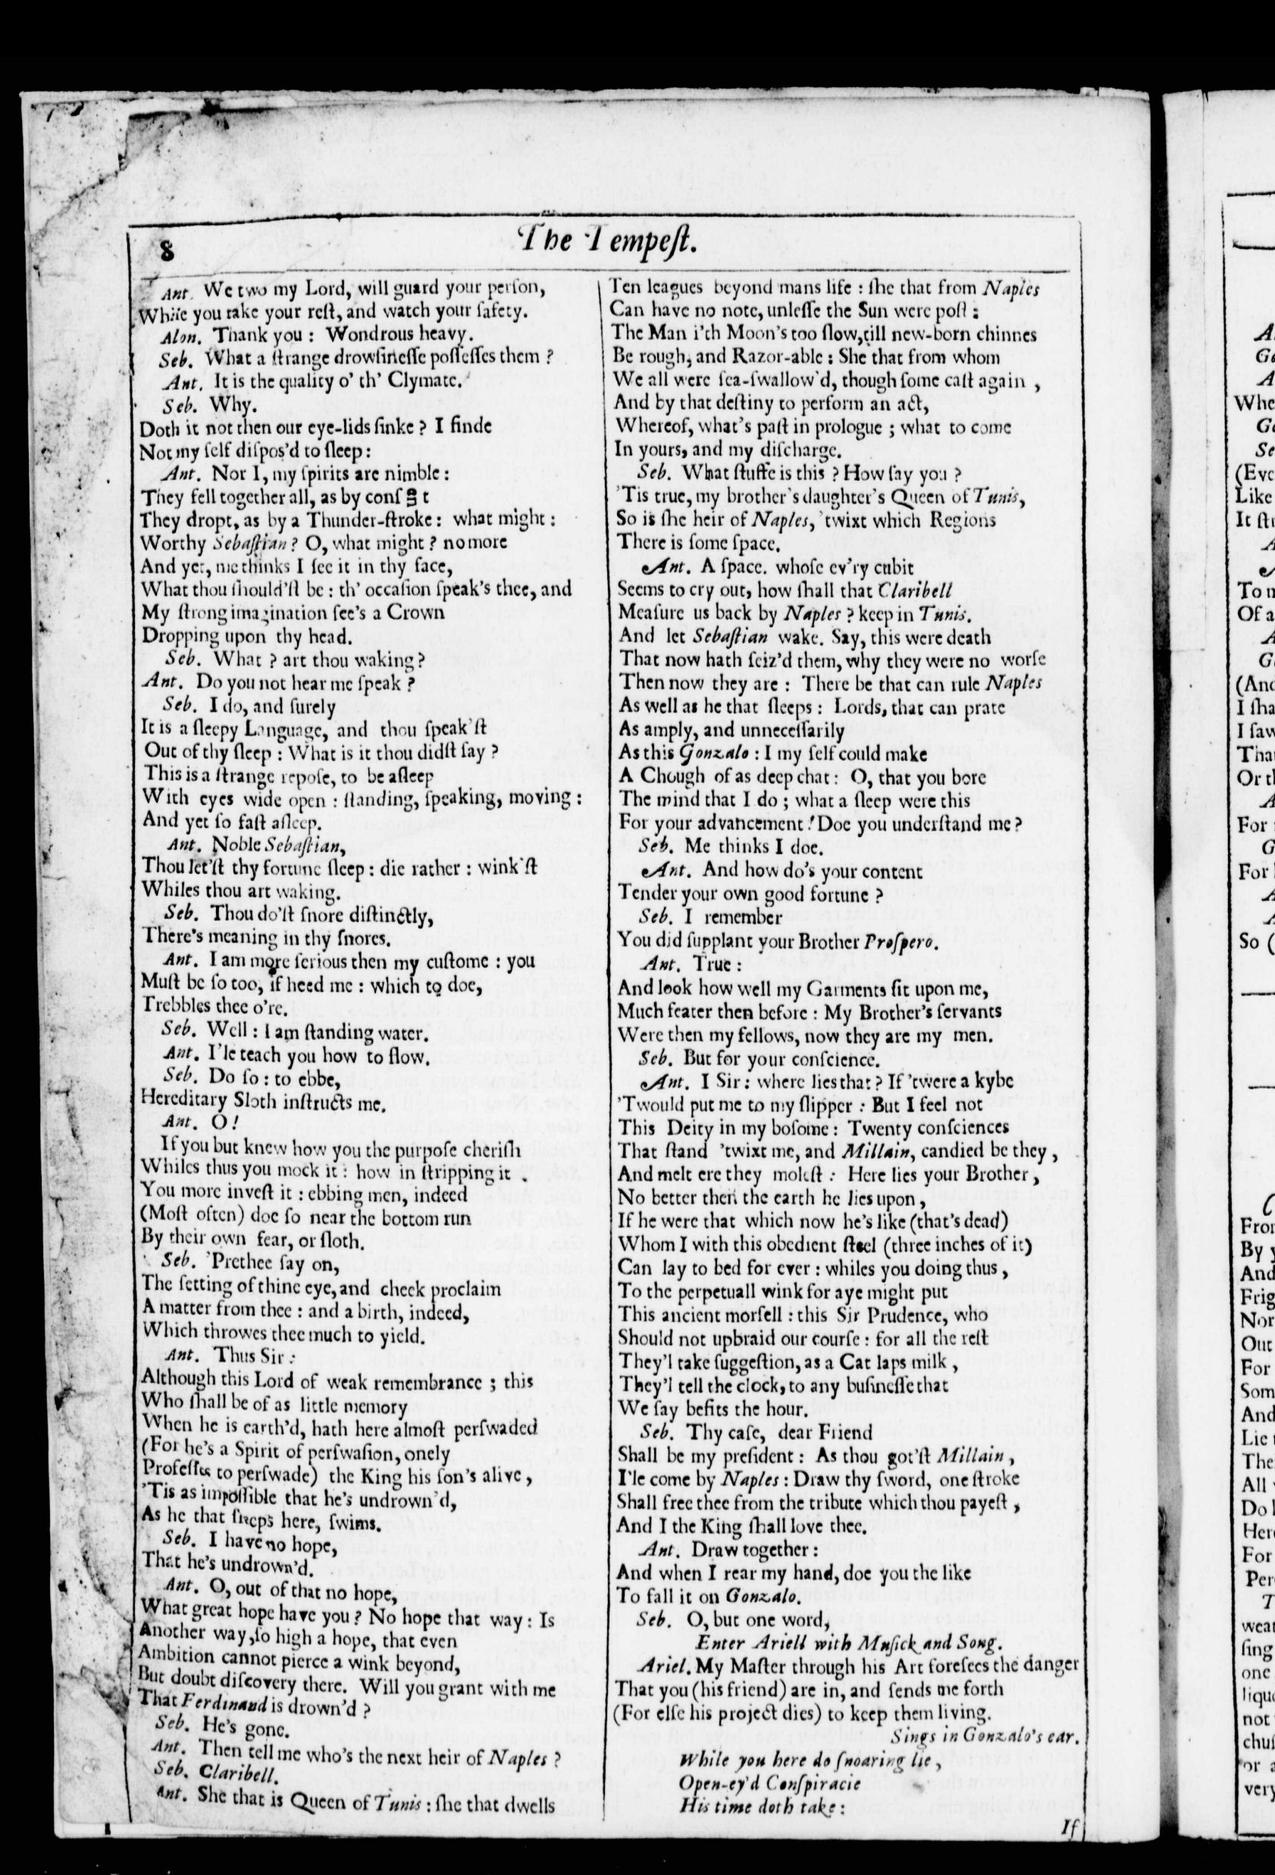 8
The Tempeſt.
Ant. We two my Lord, will guard your perſon,
While you take your reſt, and watch your ſafety.
Alon. Thank you : Wondrous heavy.
Seb. What a ſtrange drowſineſſe poſſeſſes them ?
Ant. It is the quality o' th' Clymate.
Seb. Why.
Doth it not then our eye-lids ſinke ? I finde
Not my ſelf diſpos'd to ſleep :
Ant. Nor I, my ſpirits are nimble :
They fell together all, as by conſ t
They dropt, as by a Thunder-ſtroke : what might :
Worthy Sebaſtian ? O, what might ? no more
And yet, me thinks I ſee it in thy face,
What thou ſhould'ſt be : th' occaſion ſpeak's thee, and
My ſtrong imagination ſee's a Crown
Dropping upon thy head.
Seb. What ? art thou waking ?
Ant. Do you not hear me ſpeak ?
Seb. I do, and ſurely
It is a ſleepy Language, and thou ſpeak'ſt
Out of thy ſleep : What is it thou didſt ſay ?
This is a ſtrange repoſe, to be aſleep
With eyes wide open : ſtanding, ſpeaking, moving :
And yet ſo faſt aſleep.
Ant. Noble Sebaſtian,
Thou let'ſt thy fortune ſleep : die rather : wink'ſt
Whiles thou art waking.
Seb. Thou do'ſt ſnore diſtinctly,
There's meaning in thy ſnores.
Ant. I am more ſerious then my cuſtome : you
Muſt be ſo too, if heed me : which to doe,
Trebbles thee o're.
Seb. Well : I am ſtanding water.
Ant. I'le teach you how to flow.
Seb. Do ſo : to ebbe,
Hereditary Sloth inſtructs me.
Ant. O !
If you but knew how you the purpoſe cheriſh
Whiles thus you mock it : how in ſtripping it
You more inveſt it : ebbing men, indeed
(Moſt often) doe ſo near the bottom run
By their own fear, or ſloth.
Seb. 'Prethee ſay on,
The ſetting of thine eye, and cheek proclaim
A matter from thee : and a birth, indeed,
Which throwes thee much to yield.
Ant. Thus Sir :
Although this Lord of weak remembrance ; this
Who ſhall be of as little memory
When he is earth'd, hath here almoſt perſwaded
(For he's a Spirit of perſwaſion, onely
Profeſſes to perſwade) the King his ſon's alive,
'Tis as impoſſible that he's undrown'd,
As he that ſleeps here, ſwims.
Seb. I have no hope,
That he's undrown'd.
Ant. O, out of that no hope,
What great hope have you ? No hope that way : Is
Another way, ſo high a hope, that even
Ambition cannot pierce a wink beyond,
But doubt diſcovery there. Will you grant with me
That Ferdinand is drown'd ?
Seb. He's gone.
Ant. Then tell me who's the next heir of Naples ?
Seb. Claribell.
Ant. She that is Queen of Tunis : ſhe that dwells
Ten leagues beyond mans life : ſhe that from Naples
Can have no note, unleſſe the Sun were poſt :
The Man i'th Moon's too ſlow, till new-born chinnes
Be rough, and Razor-able : She that from whom
We all were ſea-ſwallow'd, though ſome caſt again ,
And by that deſtiny to perform an act,
Whereof, what's paſt in prologue ; what to come
In yours, and my diſcharge.
Seb. What ſtuffe is this ? How ſay you ?
'Tis true, my brother's daughter's Queen of Tunis,
So is ſhe heir of Naples, 'twixt which Regions
There is ſome ſpace.
Ant. A ſpace. whoſe ev'ry cubit
Seems to cry out, how ſhall that Claribell
Meaſure us back by Naples ? keep in Tunis.
And let Sebaſtian wake. Say, this were death
That now hath ſeiz'd them, why they were no worſe
Then now they are : There be that can rule Naples
As well as he that ſleeps : Lords, that can prate
As amply, and unneceſſarily
As this Gonzalo : I my ſelf could make
A Chough of as deep chat : O, that you bore
The mind that I do ; what a ſleep were this
For your advancement ! Doe you underſtand me ?
Seb. Me thinks I doe.
Ant. And how do's your content
Tender your own good fortune ?
Seb. I remember
You did ſupplant your Brother Proſpero.
Ant. True :
And look how well my Garments ſit upon me,
Much feater then before : My Brother's ſervants
Were then my fellows, now they are my men.
Seb. But for your conſcience.
Ant. I Sir : where lies that ? If 'twere a kybe
'Twould put me to my ſlipper : But I feel not
This Deity in my boſome : Twenty conſciences
That ſtand 'twixt me, and Millain, candied be they ,
And melt ere they moleſt : Here lies your Brother ,
No better then the earth he lies upon ,
If he were that which now he's like (that's dead)
Whom I with this obedient ſteel (three inches of it)
Can lay to bed for ever : whiles you doing thus ,
To the perpetuall wink for aye might put
This ancient morſell : this Sir Prudence, who
Should not upbraid our courſe : for all the reſt
They'l take ſuggeſtion, as a Cat laps milk ,
They'l tell the clock, to any buſineſſe that
We ſay befits the hour.
Seb. Thy caſe, dear Friend
Shall be my preſident : As thou got'ſt Millain ,
I'le come by Naples : Draw thy ſword, one ſtroke
Shall free thee from the tribute which thou payeſt ,
And I the King ſhall love thee.
Ant. Draw together :
And when I rear my hand, doe you the like
To fall it on Gonzalo.
Seb. O, but one word,
Enter Ariell with Muſick and Song.
Ariel. My Maſter through his Art foreſees the danger
That you (his friend) are in, and ſends me forth
(For elſe his project dies) to keep them living.
Sings in Gonzalo's ear.
While you here do ſnoaring lie ,
Open-ey'd Conſpiracie
His time doth take :
If